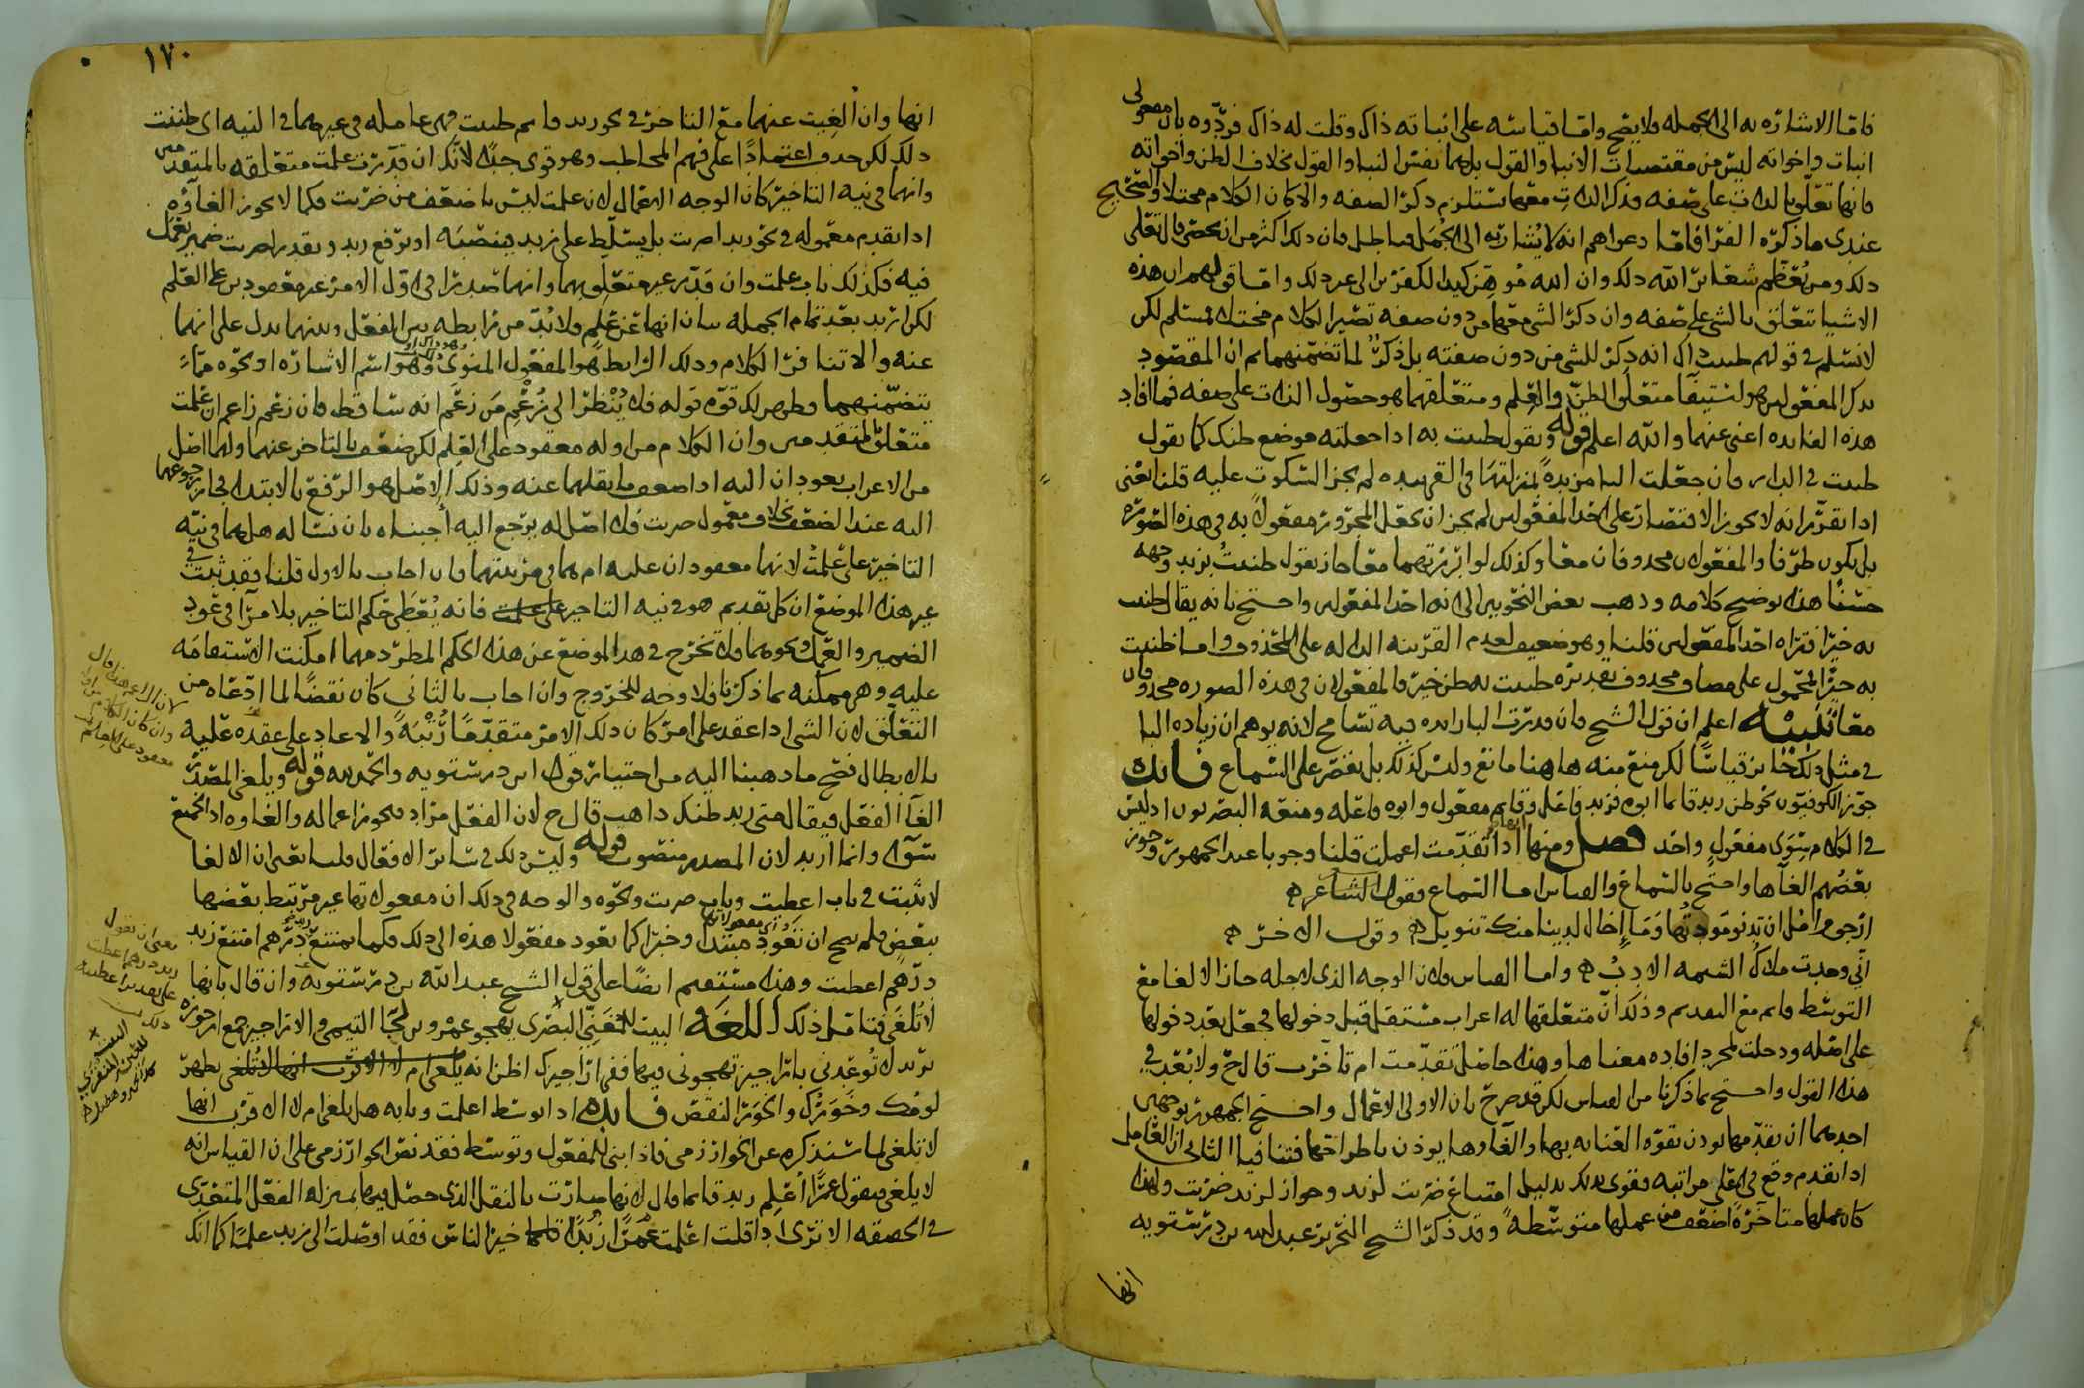 فاما الاشاره به الى الجمله فلا يصح واما قياسه على انباته ذاك وقلت له ذاك فردوه بان مفعولى
انبات واخواته ليس من مقتضيات الانبا والقول بل هما نفس النبا والقول بخلاف الظن واخواته
فانها تعلق بالذات على صفه فذكر الذات معها يستلزم ذكر الصفه والا كان الكلام مختلا والصحيح
عندى ما ذكره الفرا فاما دعواهم انه لا يشار به الى الجمل فباطل فان ذلك اكثر من ان يحصى قال تعالى
ذلك ومن يعظم شعائر الله ذلك وان الله موهن كيد الكفرين الى غير ذلك واما قولهم ان هذه
الاشيا تتعلق بالشى على صفه وان ذكر الشى معها من دون صفه تصير الكلام مختلا فمسلم لكن
لا نسلم فى قولهم ظننت ذاك انه ذكر للشى من دون صفته بل ذكر لما تضمنهما ثم ان المقصود
بذكر المفعولين هو لتستبقا متعلق الظن والعلم ومتعلقهما هو حصول الذات على صفه فما افاد
هذه الفايده اغنى عنهما والله اعلم قوله وتقول ظننت به اذا جعلته موضع ظنك كما تقول
ظننت فى الدار فان جعلت البا مزيده بمنزلتها فى القى بيده لم يجز السكوت عليه قلنا يعنى
اذا تقرر انه لا يجوز الاقتصار على احد المفعولين لم يجز ان تجعل المجرور مفعولا به فى هذه الصوره
بل يكون ظرفا والمفعولان محذوفان معا وكذلك لو ابرزتهما معا جاز تقول ظننت بزيد وجهه
حسنا هذا توضيح كلامه وذهب بعض النحويين الى انه احد المفعولين واحتج بانه يقال ظننت
به خيرا فتراه احد المفعولين قلنا وهو ضعيف لعدم القرينه الداله على المحذوف واما ظننت
به خيرا فمحمول على مضاف محذوف تقديره ظننت به ظن خير فالمفعولان فى هذه الصوره محذوفان
معا تنبيه اعلم ان قول الشيخ فان قدرت البا زايده فيه تسامح لانه يوهم ان زياده البا
فى مثل ذلك جائز قياسا لكن منع منه هاهنا مانع وليس كذلك بل يقصر على السماع فايده
جوز الكوفيون نحو ظن زيد قائما ابوه فزيد فاعل وقايم مفعول وابوه فاعله ومنعه البصريون اذ ليس
فى الكلام سوى مفعول واحد فصل ومنها انها اذا تقدمت اعملت قلنا وجوبا عند الجمهور وجوز
بعضهم الغاها واحتج بالسماع والقياس اما السماع فقول الشاعر
ارجو وامل ان تدنو مودتها وما اخال لدينا منك تنويل وقول الاخر
انى وجدت ملاك الشيمه الادب واما القياس فلان الوجه الذى لاجله جاز الالغا مع
التوسط قايم مع التقديم وذلك ان متعلقها له اعراب مستقل قبل دخولها فجعل بعد دخولها
على اصله ودخلت لمجرد افاده معناها وهذا حاصل تقدمت ام تاخرت قال ح ولا بعد فى
هذا القول واحتج بما ذكرنا من القياس لكن قد صرح بان الاولى الاعمال واحتج الجمهور بوجهين
احدهما ان تقدمها يوذن بقوه العنايه بها والغاوها يوذن باطراحها فتنافيا الثانى ان العامل
اذا تقدم وقع فى اعلى مراتبه فقوى بذلك بدليل امتناع ضربت لزيد وجواز لزيد ضربت ولهذا
كان عملها متاخره اضعف من عملها متوسطه وقد ذكر الشيخ النحرير عبد الله بن درستويه
انها
١٧٠
انها وان الغيت عنهما مع التاخر فى نحو زيد قايم ظننت فهى عامله فى غيرهما فى النيه اى ظننت
ذلك لكن حذف اعتمادا على فهم المخاطب وهو قوى جدا لانك ان قدرت علمت متعلقه بالمتقدمين
وانهما فى نيه التاخير كان الوجه الاعمال لان علمت ليس باضعف من ضربت فكما لا يجوز الغاوه
اذا تقدم معموله فى نحو زيدا ضربت بل يسلط على زيد فينصبه او ترفع زيد وتقدر لضربت ضمير يعمل
فيه فكذلك باب علمت وان قدر غير متعلق بهما وانهما صدرا فى اول الامر غير معقودين على العلم
لكن اريد بعد تمام الجمله بيان انها عن علم فلا بد من رابطه بين الفعل وبينهما يدل على انهما
عنه والا تنافر الكلام وذلك الرابط هو المفعول المنوى وهو اسم الاشاره او نحوه مما
يتضمنهما وظهر لك قوه قوله فلا ينظر الى زعم من زعم انه ساقط فان زعم زاعم ان علمت
متعلق بالمتقدمين وان الكلام من اوله معقود على العلم لكن ضعف بالتاخر عنهما ولهما اصل
من الاعراب يعودان اليه اذا ضعف ما ينقلهما عنه وذلك الاصل هو الرفع بالابتدا فجاز رجوعهما
اليه عند الضعف بخلاف معمول ضربت فلا اصل له يرجع اليه اجبناه بان نساله هل هما فى نيه
التاخير على علمت لانهما معقودان عليه ام هما فى مرتبتهما فان اجاب بالاول قلنا فقد ثبت فى
غير هذا الموضع ان كل تقديم هو فى نيه التاخير فانه يعطى حكم التاخير بلا مرا فى عود
الضمير والعمل ونحوهما فلا تخرج فى هذا الموضع عن هذا الحكم المطرد مهما امكنت الاستقامه
عليه وهى ممكنه بما ذكرنا فلا وجه للخروج وان اجاب بالثانى كان نقضا لما ادعاه من
التعلق لان الشى اذا عقد على امر كان ذلك الامر متقدما رتبه والا عاد على عقده عليه
بالابطال فصح ما ذهبنا اليه من اختيار قول ابن درستويه والحمد لله قوله ويلغى المصدر
الغا الفعل فيقال متى زيد ظنك ذاهب قال ح لان الفعل مراد فيجوز اعماله والغاوه اذ الجميع
سوا وانما اريد لان المصدر منصوب قوله وليس ذلك فى سائر الافعال قلنا يعنى ان الالغا
لا يثبت فى باب اعطيت وباب ضربت ونحوه والوجه فى ذلك ان مفعولاتها غير مرتبط بعضها
ببعض فلم يصح ان تعود مبتدا وخبرا كما يعود مفعولا هذه الى ذلك فكما يمتنع زيد درهم امتنع زيد
درهم اعطيت وهذا مستقيم ايضا على قول الشيخ عبد الله بن درستويه وان قال بانها
لا تلغى فتامل ذلك اللغه البيت للمنقرى البصرى يهجو عمرو بن لجا التيمى والاراجيز جمع ارجوزه
يريد لا توعدنى باراجيز تهجونى فيها ففى اراجيزك اظن انه
لومك وخورك والخور النقص فايده اذا توسط اعلمت وبابه هل يلغى ام لا الاقرب انها
لا تلغى لما سنذكره عن الخوارزمى فاذا بنى للمفعول وتوسط فقد نص الخوارزمى على ان القياس انه
لا يلغى فيقول عمرا اعلم زيد قايما قال لانها صارت بالنقل الذى حصل فيها بمنزله الفعل المتعدى
فى الحقيقه الا ترى اذا قلت اعلمت عمرا زيدا خير الناس فقد اوصلت الى زيد علما كما انك